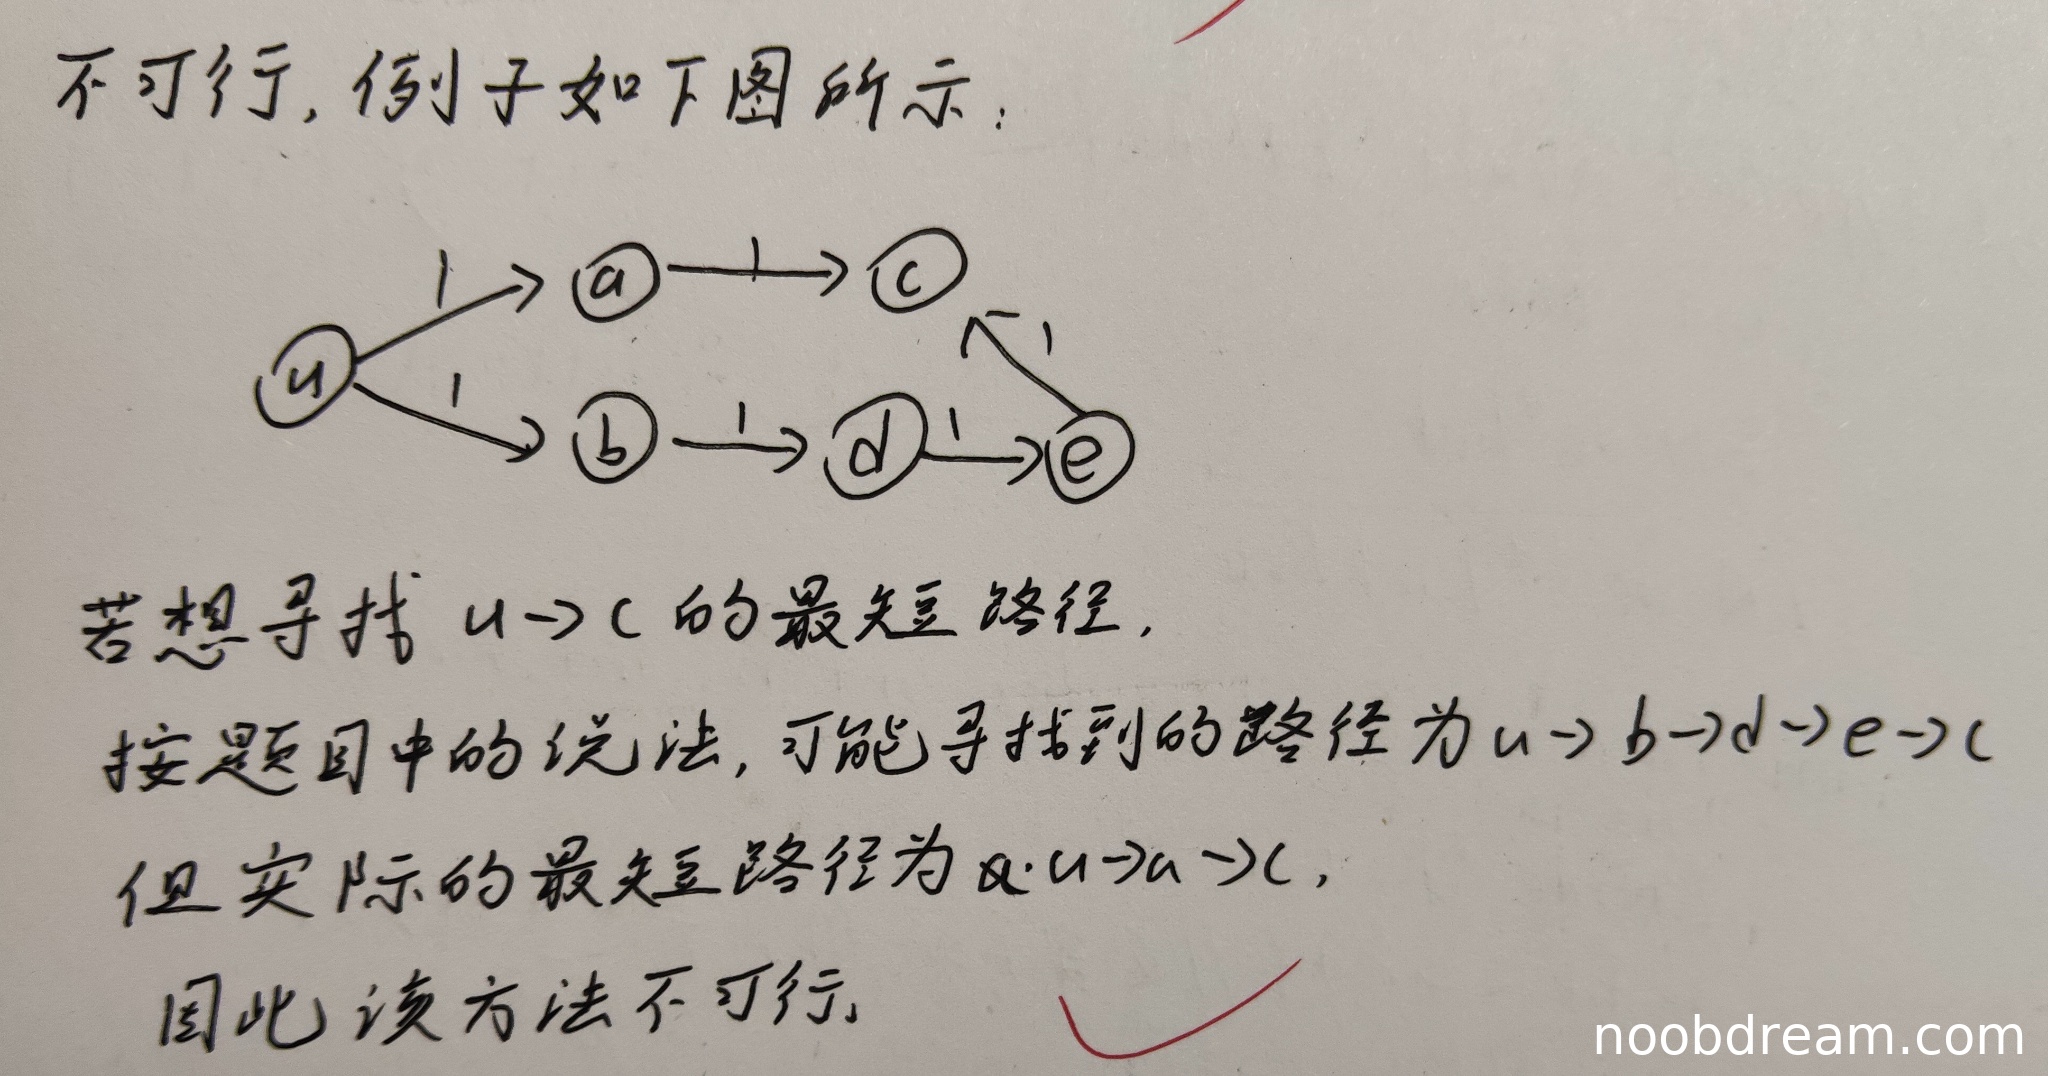 不可行，例子如下图所示：
1 a 1 c
u 1
1 b 1 d 1 e
若想寻找 u→c 的最短路径，
按题目中的说法，可能寻找到的路径为 u→b→d→e→c
但实际的最短路径为 u→a→c，
因此该方法不可行，
noobdream.com